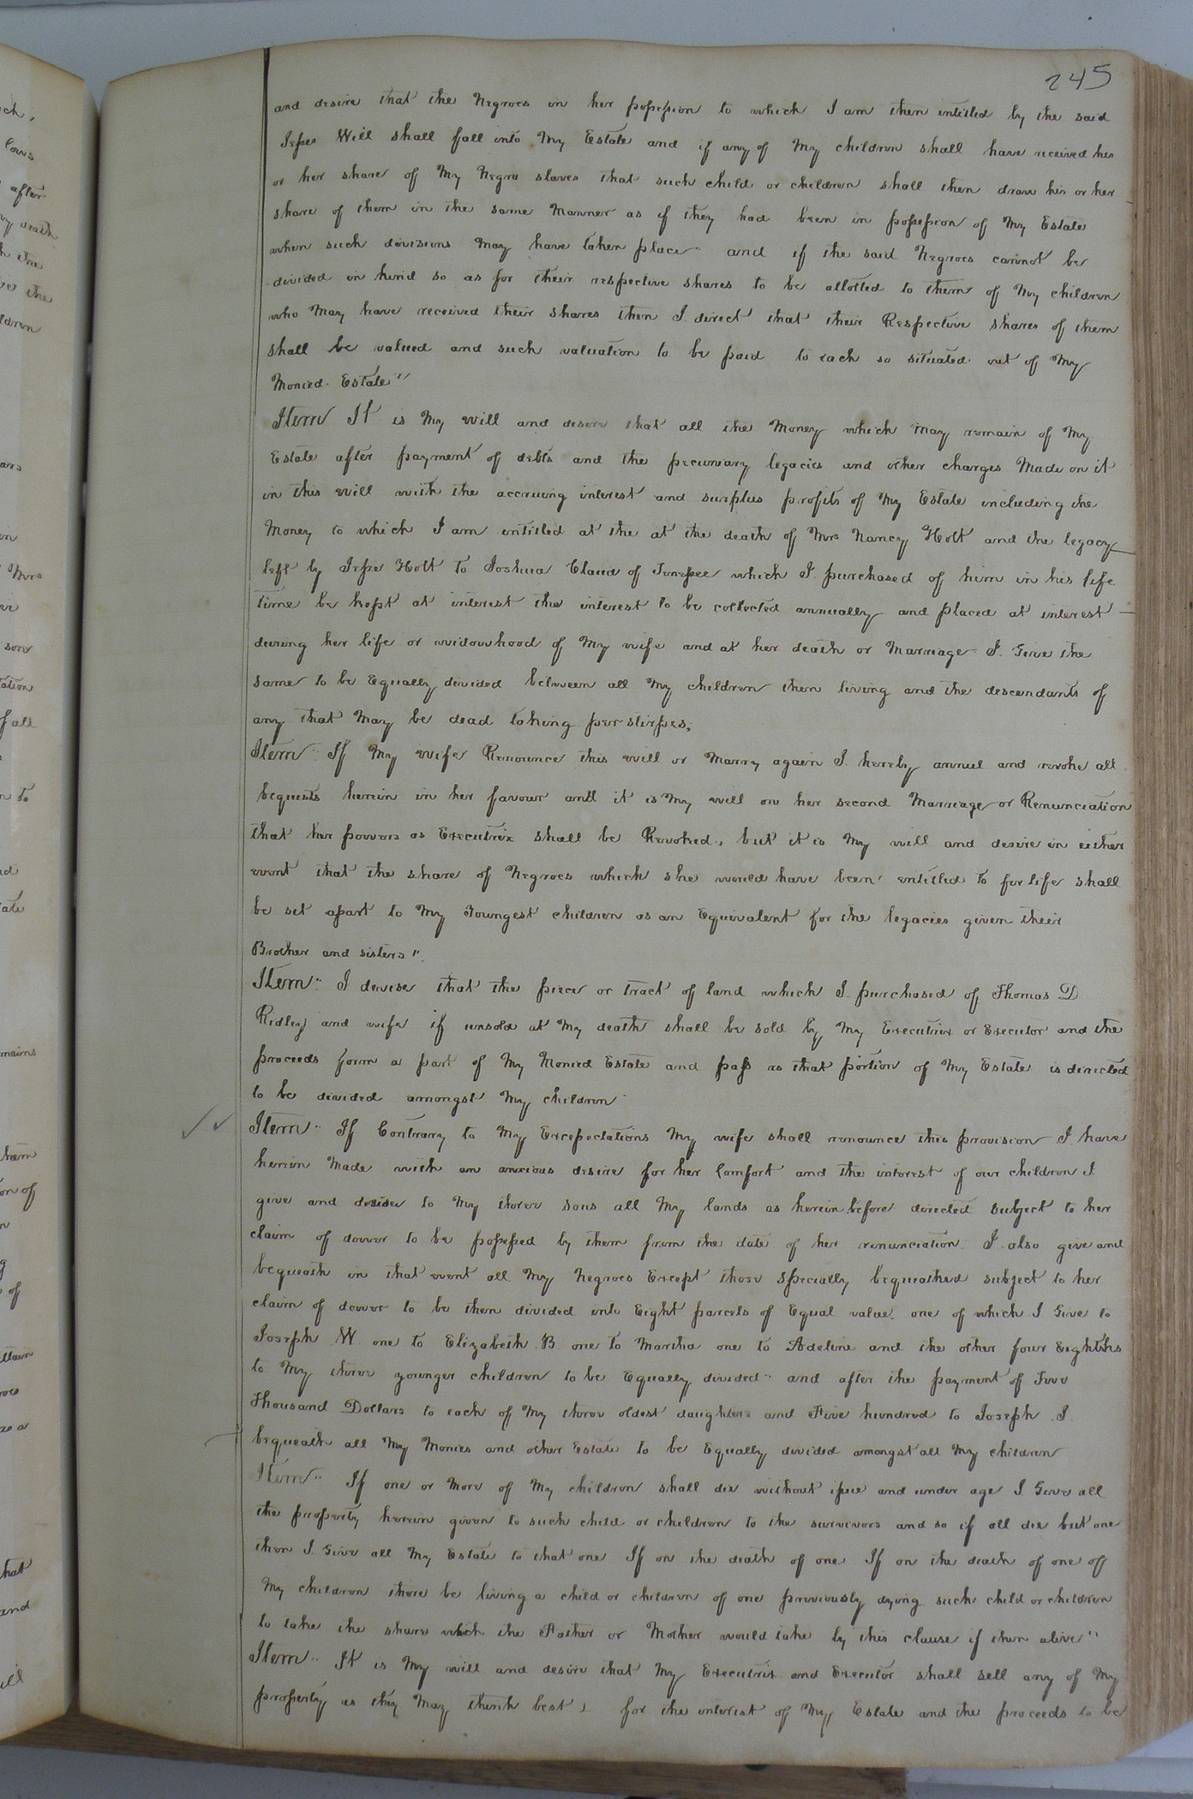 245
and desire that the Negroes in her possession to which I am then intitled by the said
Jesse Will shall fall into My Estate and if any of My children shall have received his
or her share of My Negro slaves that such child or children shall then draw his or her
share of them in the same Manner as if they had been in possession of My Estate
when such divisions May have taken place and if the said Negroes cannot be
divided in kind so as for their respective shares to be allotted to them of My children
who May have received their shares then I direct that their Respective shares of them
shall be valued and such valuation to be paid to each so situated out of My
Monied Estate"
Item It is My will and desire that all the Money which may remain of My
Estate after payment of debts and the pecuniary legacies and other charges Made on it
in this will with the accruing interest and surplus profits of My Estate including the
Money to which I am intitled at the at the death of Mrs Nancy Holt and the legacy
left by Jesse Holt to Joshua Claud of Tenessee which I purchased of him in his life
time be kept at interest the interest to be collected annually and placed at interest
during her life or widowhood of My wife and at her death or Marriage I Give the
same to be Equally divided between all My children then living and the descendants of
any that May be dead taking per stirpes,
Item If My wife Renounce this will or Marry again I hereby annul and revoke all
bequests herein in her favour and it is My will on her second Marriage or Renunciation
that her powers as Executrix shall be Revoked, but it is My will and desire in either
event that the share of Negroes which she would have been entitled to for life shall
be set apart to My Youngest children as an Equivalent for the legacies given their
Brother and sisters".
Item I devise that the piece or tract of land which I purchased of Thomas D
Ridley and wife if unsold at My death shall be sold by My Executrix or Executor and the
proceeds form a part of My Monied Estate and pass as that portion of My Estate is directed
to be divided amongst My children
Item If Contrary to My Exepectations My wife shall renounce this provision I have
herein Made with an anxious desire for her Comfort and the interest of our children I
give and devise to My three sons all My lands as herein before directed subject to her
claim of dower to be possessed by them from the date of her renunciation I also give and
bequeath in that event all My Negroes Except those specially bequeathed subject to her
claim of dower to be then divided into Eight parcels of Equal value. one of which I Give to
Joseph W one to Elizabeth B one to Martha one to Adeline and the other four Eighths
to My three younger children to be Equally divided" and after the payment of Five
Thousand Dollars to each of My three oldest daughters and Five hundred to Joseph I
bequeath all My Monies and other Estate to be Equally divided amongst all My children
Item" If one or More of My children shall die without issue and under age I Give all
the property herein given to such child or children to the survivors and so if all die but one
then I Give all My Estate to that one If on the death of one If on the death of one of
My children there be living a child or children of one previously dying such child or children
to take the share which the Father or Mother would take by this clause if then alive"
Item" It is My will and desire that My Executrix and Executor shall sell any of My
property as they May think best, for the interest of My Estate and the proceeds to be